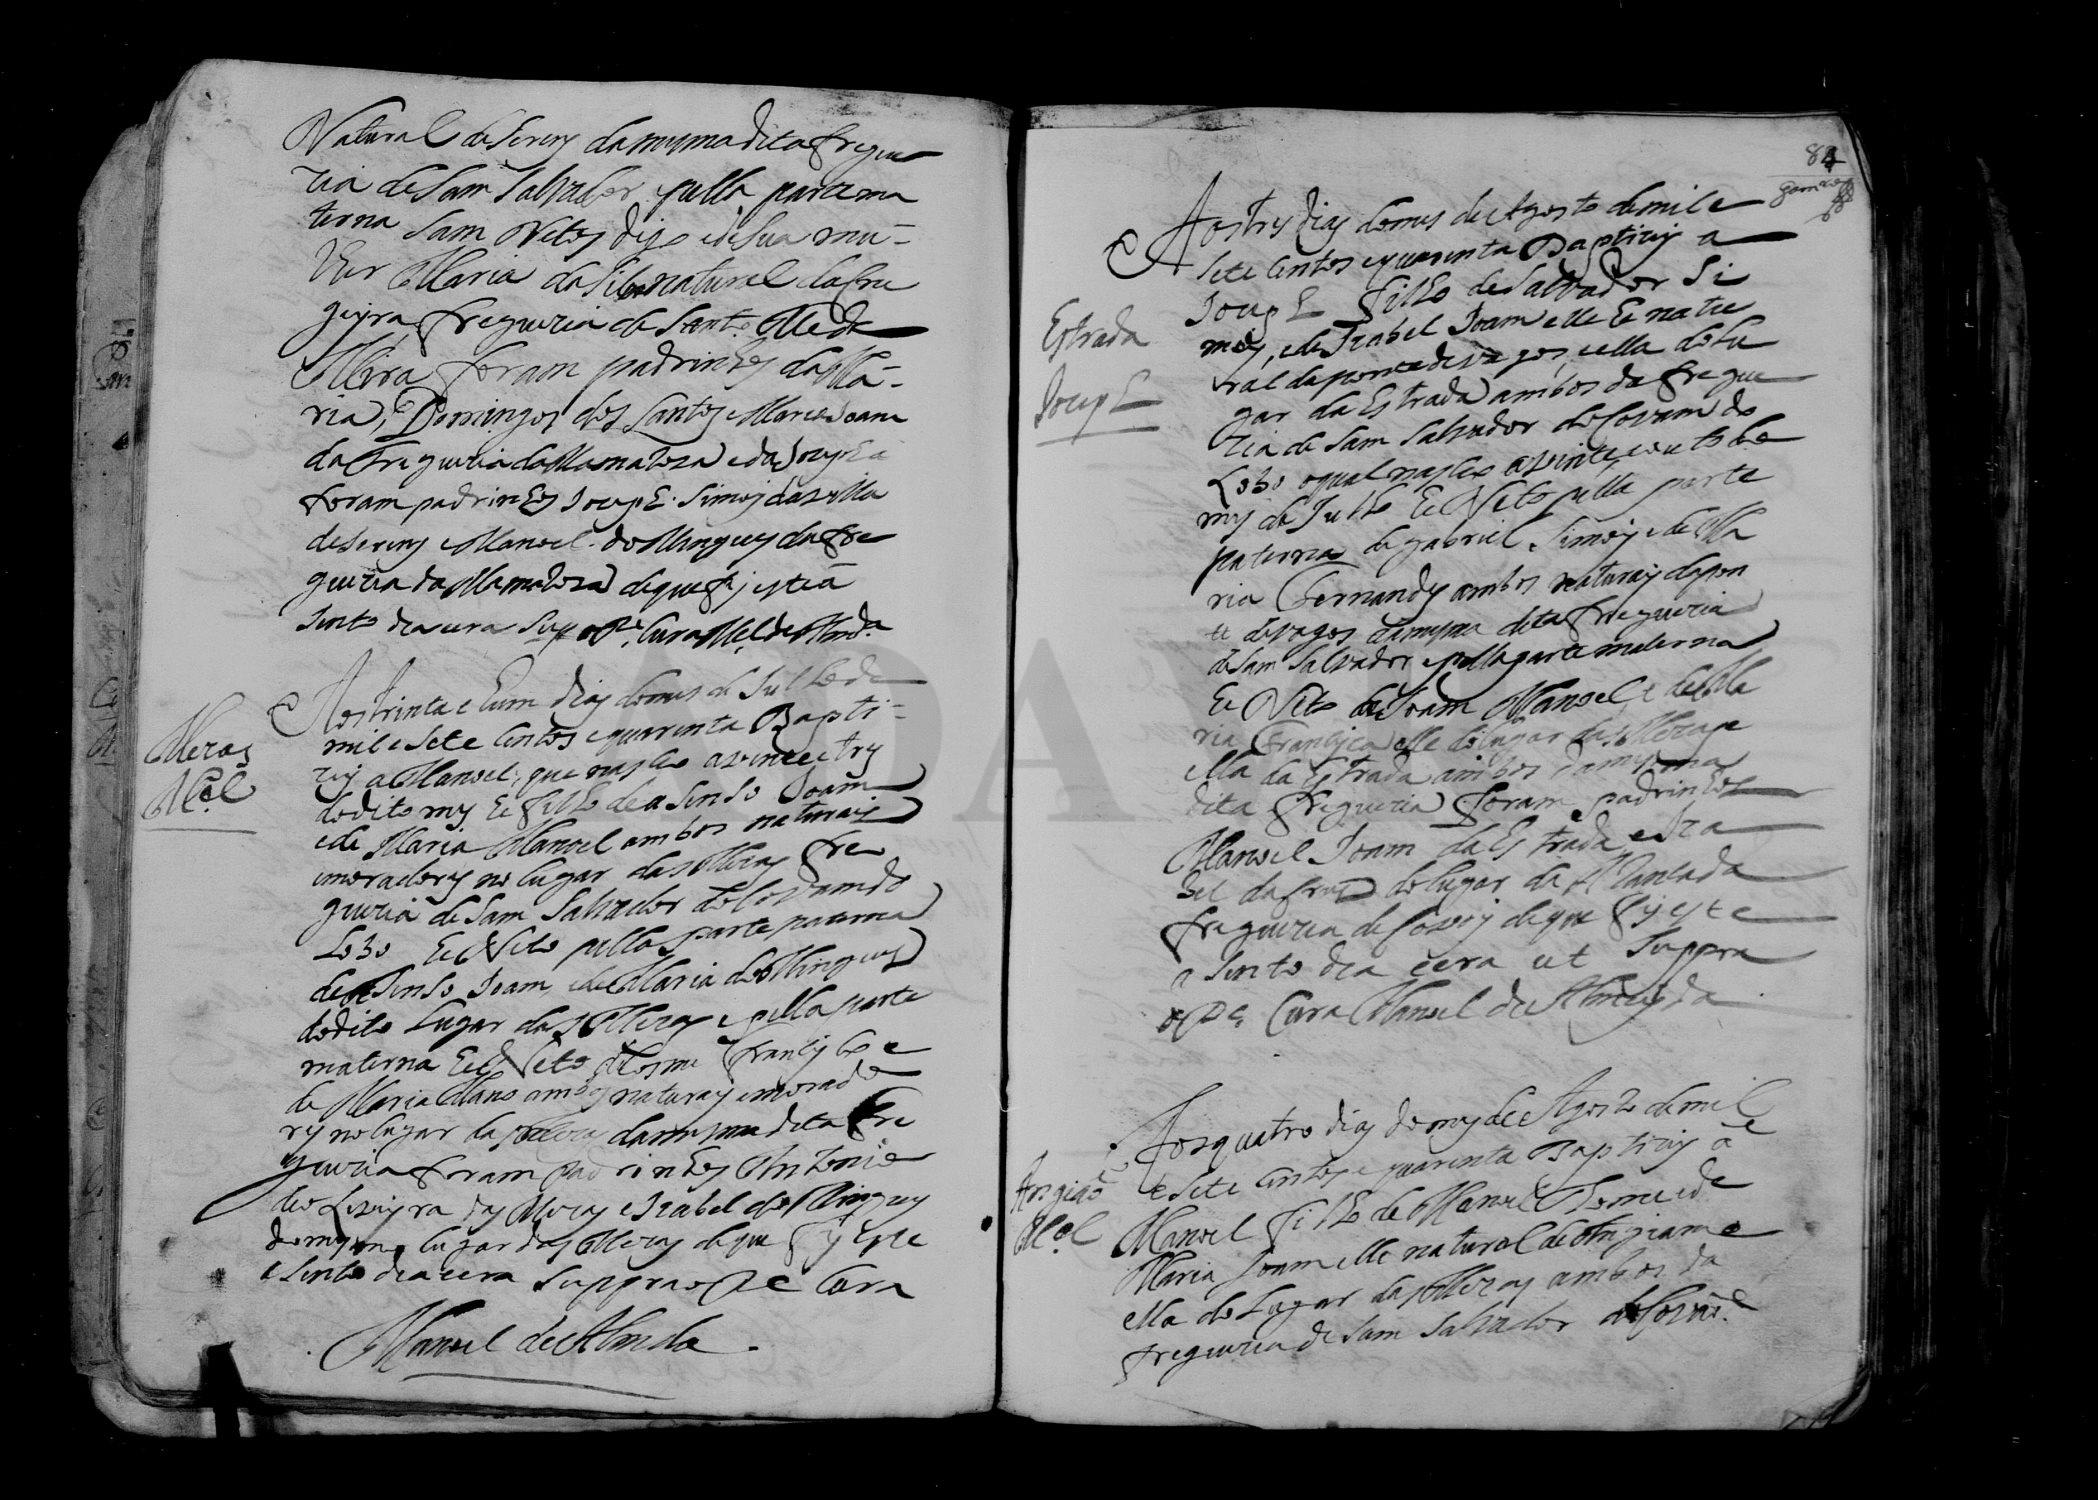 Natural de Sereny da mesma dita fregue
zia de Sam Salvador, e pella parte ma
terna Sam Netos digo e de sua mu-
lher Maria da Silva natural da fre
guezia de Santo
Mira foram padrinhos da Ma-
ria, Domingos dos Santos e Maria Joam
da freguezia da Mamaroza e da Josepha
foram padrinhos Joseph Simois da villa
de Sereny e Manoel dominguez da fre
guezia da Mamaroza de que fis este a
sento dia e era sup o Pe. Cura Mel de Almda.
Meras
Mel
Aos trinta e hum dias do mes de Julho de
mil e sete centos e quarenta Bapti-
zei a Manoel, que nasceo a vinte e tres
do dito mes he filho de Asenso Joam
e de Maria Manoel ambos naturais
e moradores no lugar das Meras fre
guezia de Sam Salvador do Covam do
Lobo he Neto pella parte paterna
de Asenso Joam, e de Maria dominguez
do dito Lugar das Meras e pella parte
materna he Neto de Cosme Francisco e
de Maria Mano ambos naturais e morado
res no lugar das Meras da mesma dita fre
guezia foram padrinhos Antonio
de Oliveyra das Meras e Izabel dominguez
do mesmo lugar das Meras de que fis este
asento dia e era suppra o Pe Cura
Manoel de Almda.
84
Estrada
Joseph
Aos tres dias do mes de Agosto de mil e
sete centos e quarenta Baptizei a
Joseph filho de Salvador Si
mois, e de Izabel Joam elle he natu
ral da ponte de vagos, e ella do lu
gar da Estrada ambos da fregue
zia de Sam Salvador do Covam do
Lobo o qual nasceo a vinte e outo do
mes de Julho he Neto pella parte
paterna de gabriel Simois e de Ma
ria Fernandes ambos naturais da pon
te de vagos da mesma dita freguezia
de Sam Salvador e pella parte materna
he Neto de Joam Manoel e de Ma
ria Francisca elle do lugar das Meras e
ella da Estrada ambos da mesma
dita freguezia foram padrinhos
Manoel Joam da Estrada e Iza
bel da Crus do lugar da
freguezia de de que fis este
asento dia e era ut suppra
o Pe. Cura Manoel de Almeyda
Angião
Mel
Aos quatro dias do mes de Agosto de mil
e sete centos e quarenta Baptizei a
Manoel filho de Manoel Thome e de
Maria Joam elle natural de Angiam e
ella do Lugar das Meras ambos da
freguezia de Sam Salvador do Covão